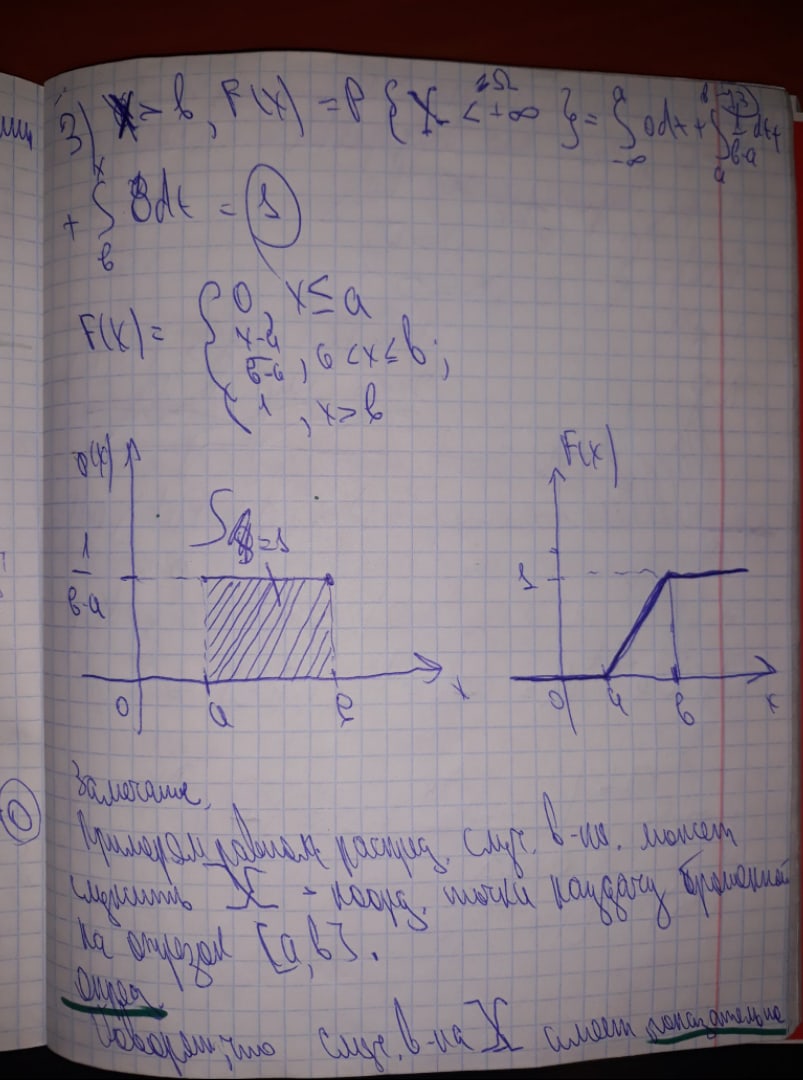 3) x > b, F(x) = P{X < +∞} = ∫ 0dt +
+ ∫ 0dt = 1
F(x) = { 0, x ≤ a
x-a / b-a, a < x ≤ b ;
1, x > b
F(x)
1 / b-a
S =1
1
0 a b x
0 a b x
Замечание.
Примером равном. распред. случ. в-ны. может
служить X - коорд. точки наудачу брошенной
на отрезок [a, b].
опред.
Говорят, что случ. в-на X имеет показательное